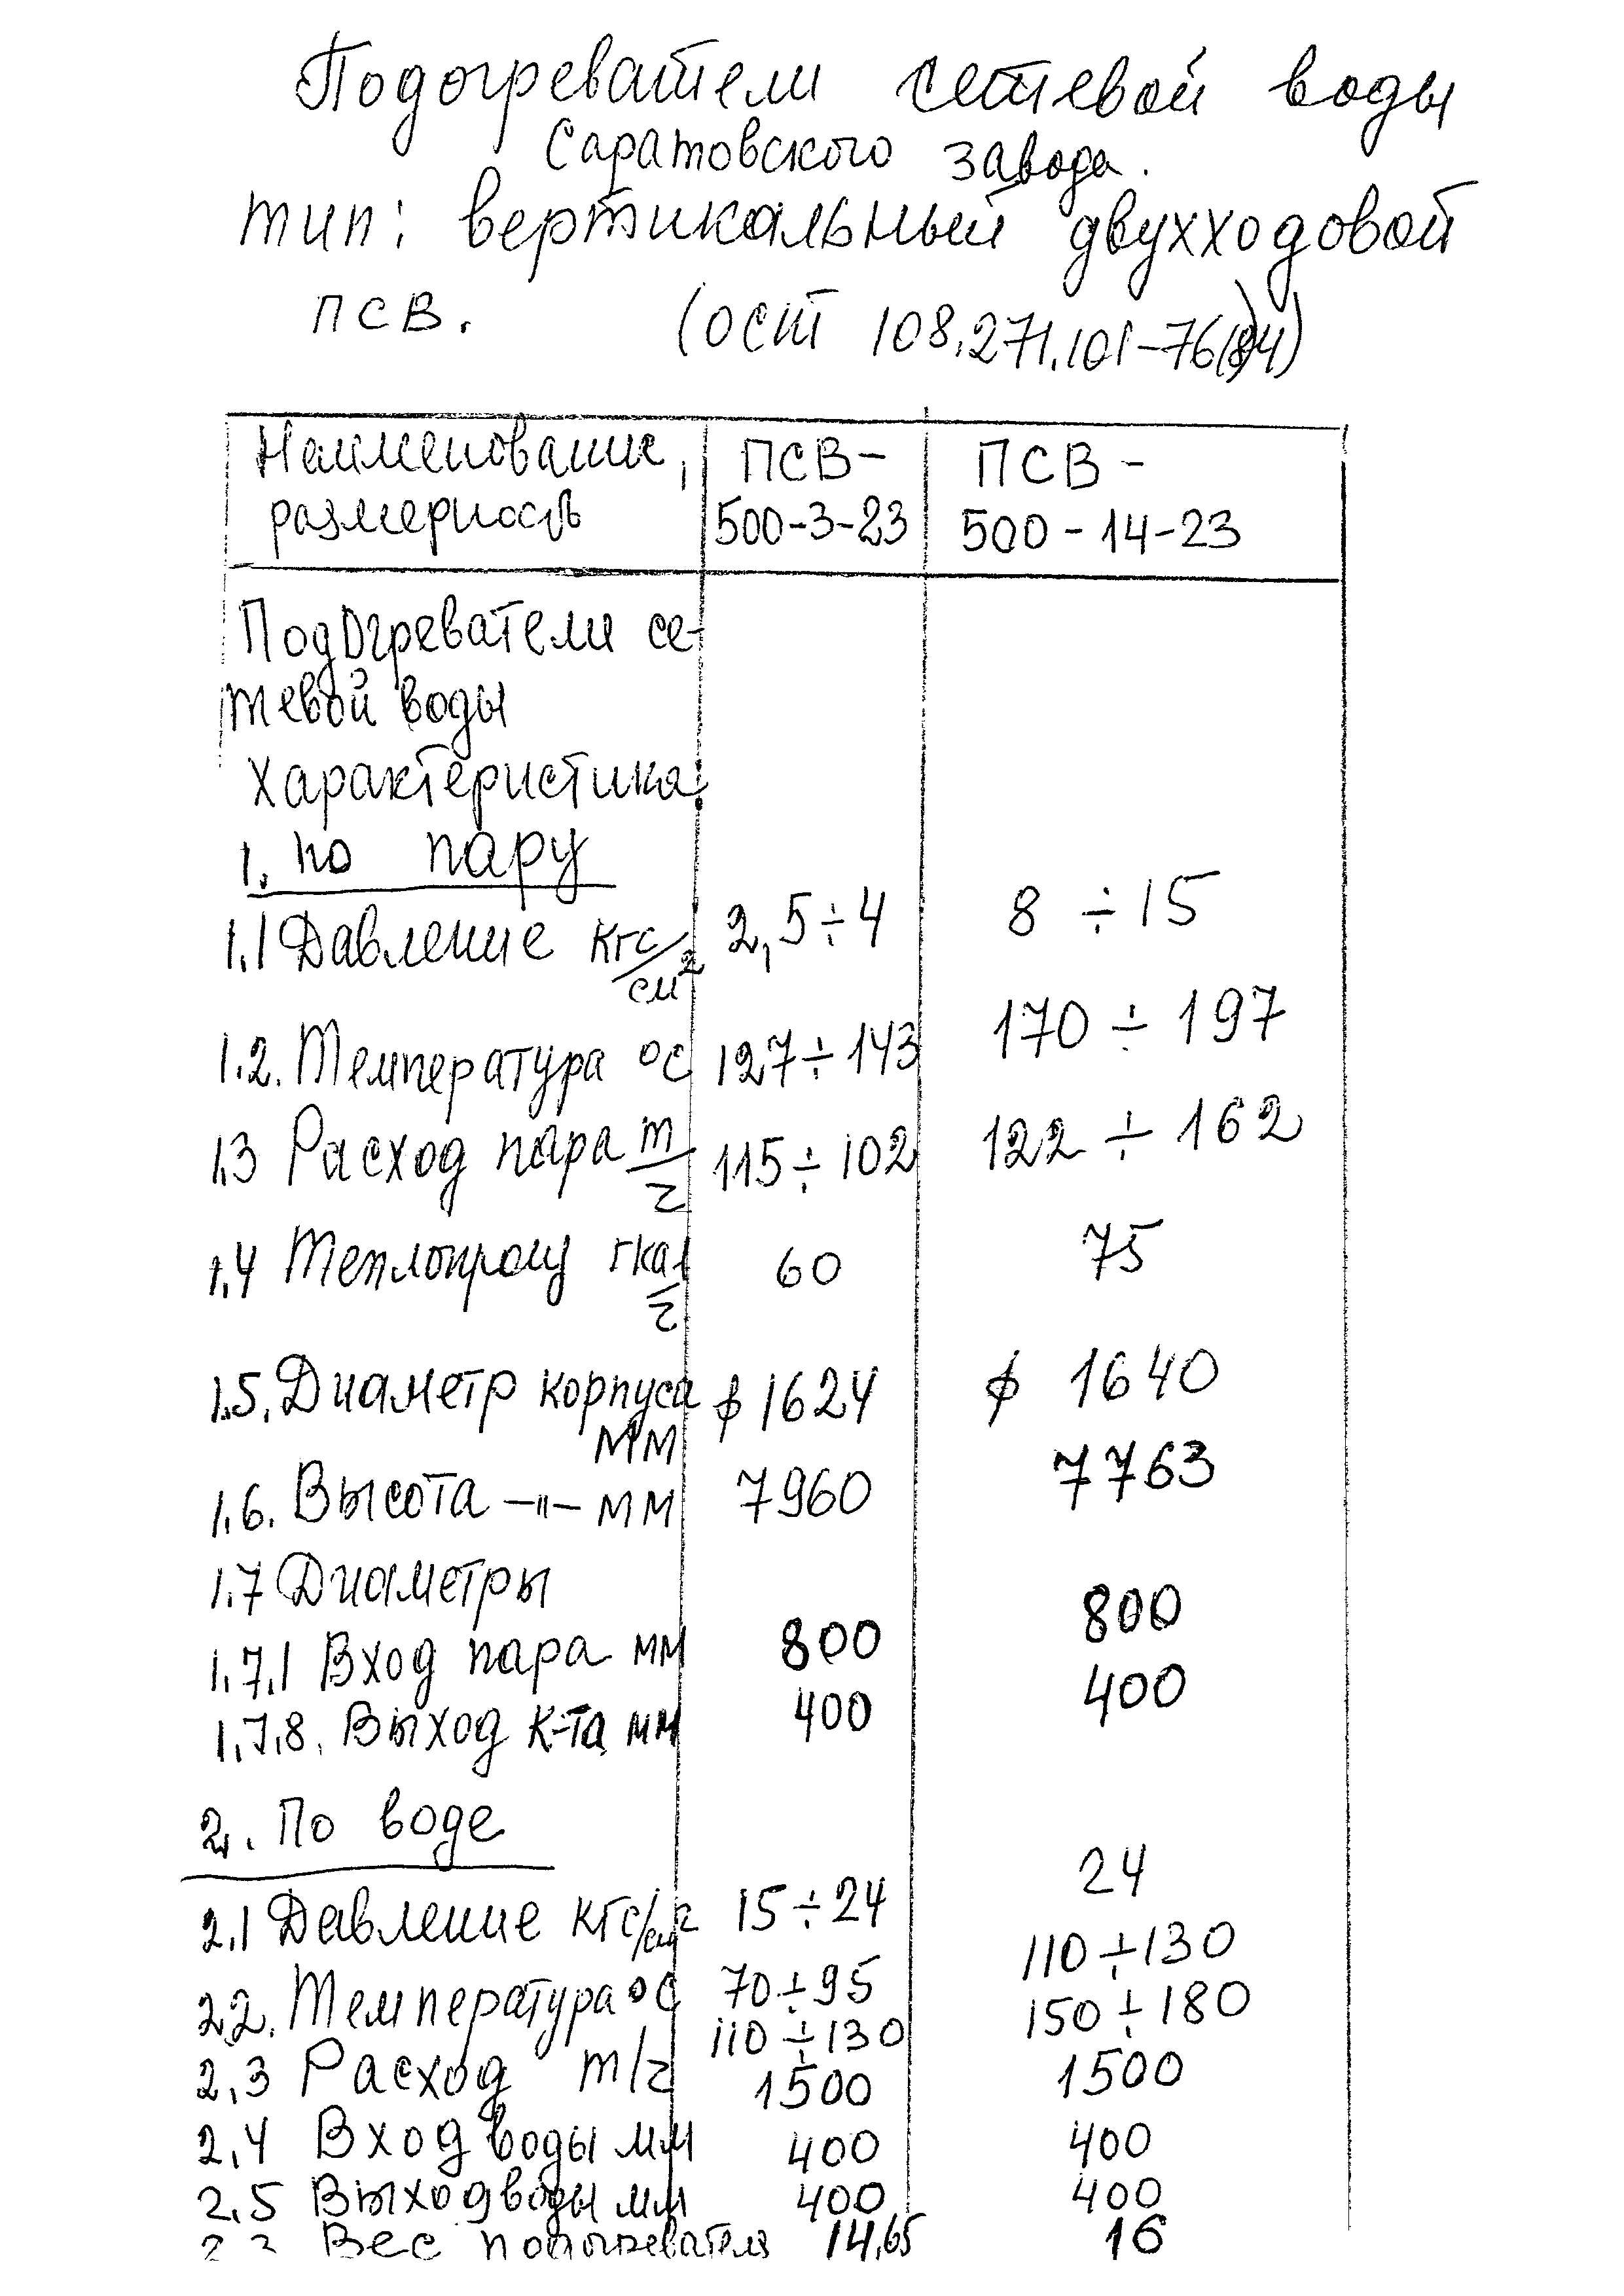 Подогреватели сетевой воды
Саратовского завода.
тип: вертикальный двухходовой
ПСВ. (ОСТ 108.271.101-76(84)
Наименование, ПСВ- ПСВ -
размерность 500-3-23 500 - 14-23
Подогреватели се-
тевой воды
Характеристика
1. по пару
1.1 Давление кгс/см2 2,5÷4 8 ÷ 15
1.2. Температура °С 127÷143 170 ÷ 197
1.3 Расход пара т/г 115÷102 122 ÷ 162
1.4 Теплопроиз гкал/г 60 75
1.5. Диаметр корпуса ϕ1624 ϕ 1640
мм
1.6. Высота -"- мм 7960 7763
1.7 Диаметры
1.7.1 Вход пара мм 800 800
1.7.8. Выход к-та мм 400 400
2. По воде
2.1 Давление кгс/см2 15÷24 24
2.2. Температура °С 70÷95 110÷130
110÷130 150÷180
2.3 Расход т/г 1500 1500
2.4 Вход воды мм 400 400
2.5 Выход воды мм 400 400
Вес подогревателя 14,65 16